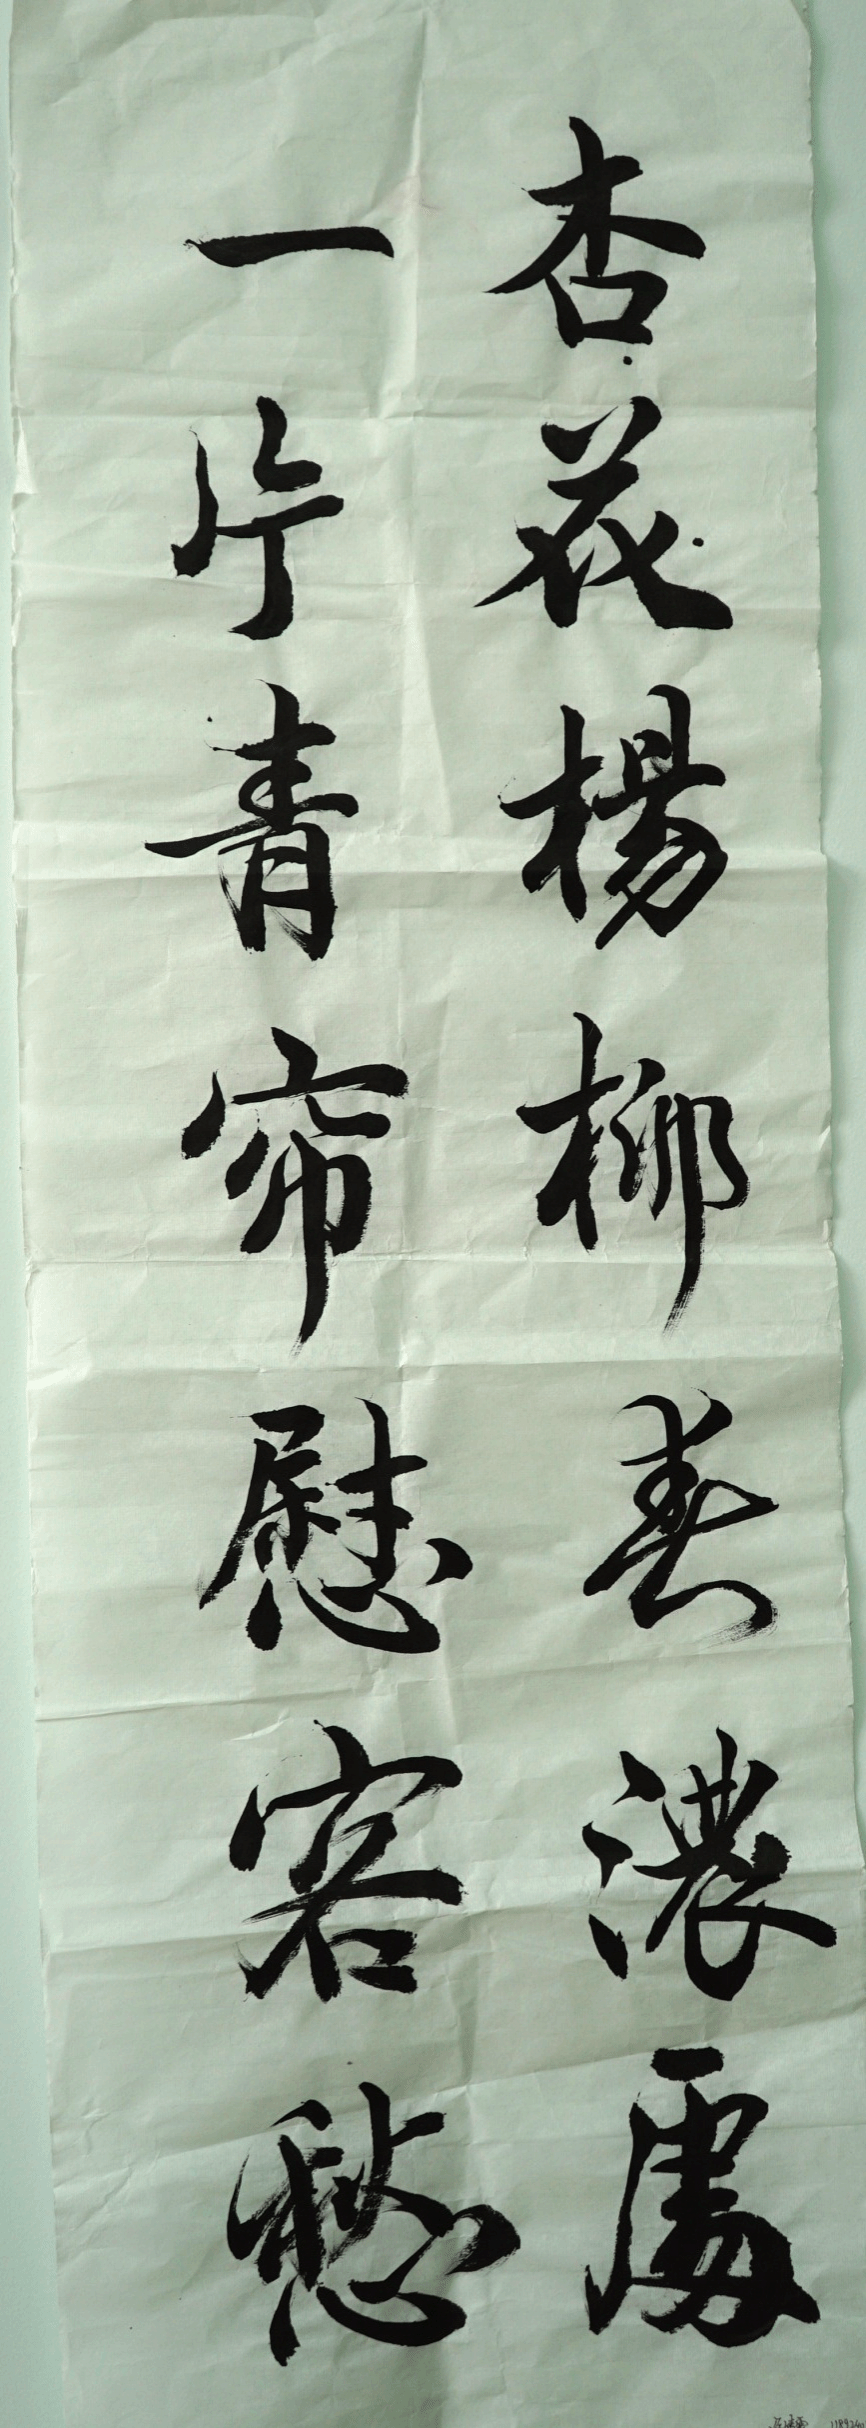 杏花楊柳春濃處
一片青帘慰客愁